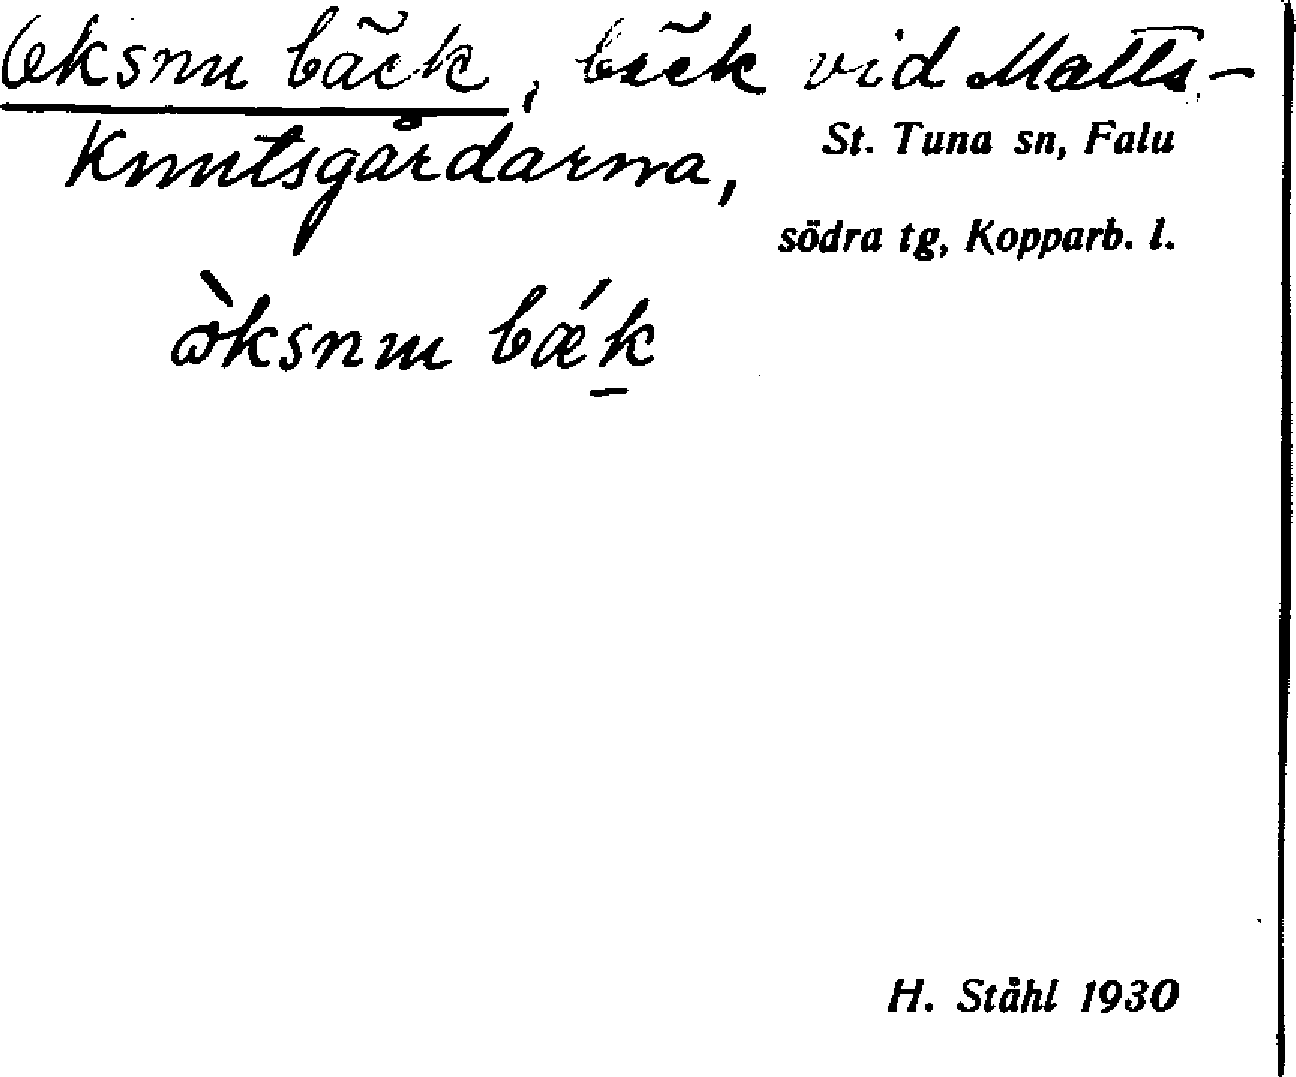 Oksnu bäck, bäck vid Matts-
Knutsgårdarna,
St. Tuna sn, Falu
södra tg, Kopparb. l.
òksnɯ bǽk
H. Ståhl 1930